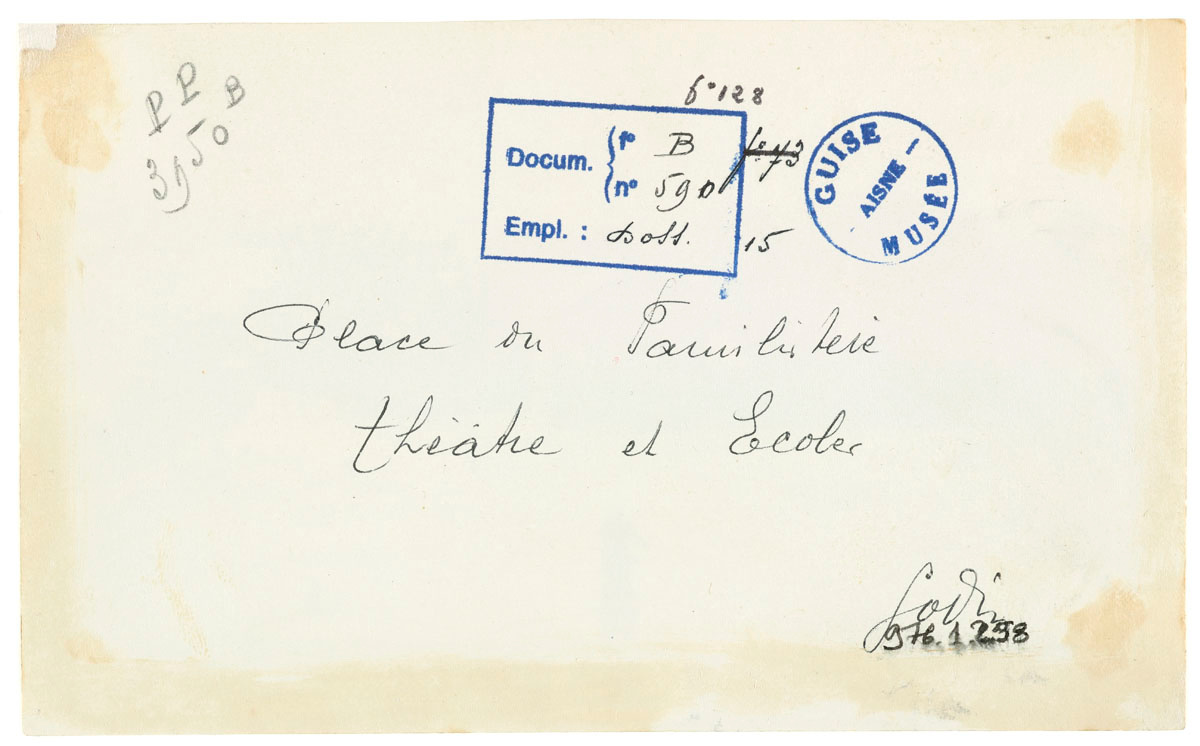 PP
3950 B
f° 128
Docum. f° B
n° 590
f° 73
Empl. : Doss. 15
GUISE
AISNE
MUSÉE
Place du Familistère
théâtre et Ecoles
Godin
976.1.298